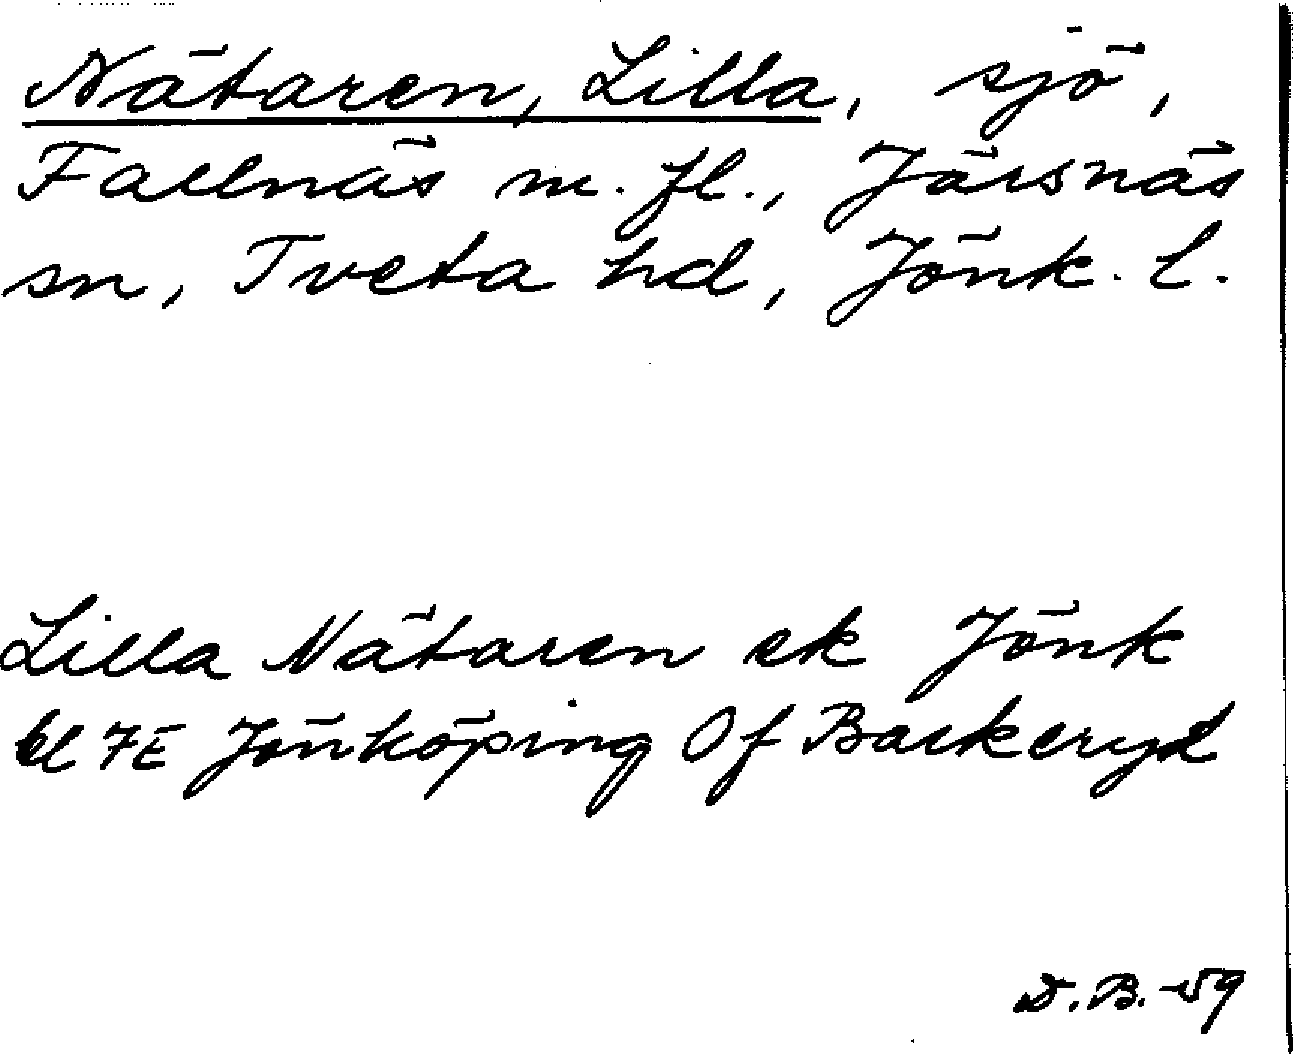 Nätaren, Lilla, sjö,
Fallnäs m. fl., Järsnäs
sn, Tveta hd, Jönk. l.
Lilla Nätaren ek Jönk
bl 7E Jönköping Of Backeryd
D.B. -59